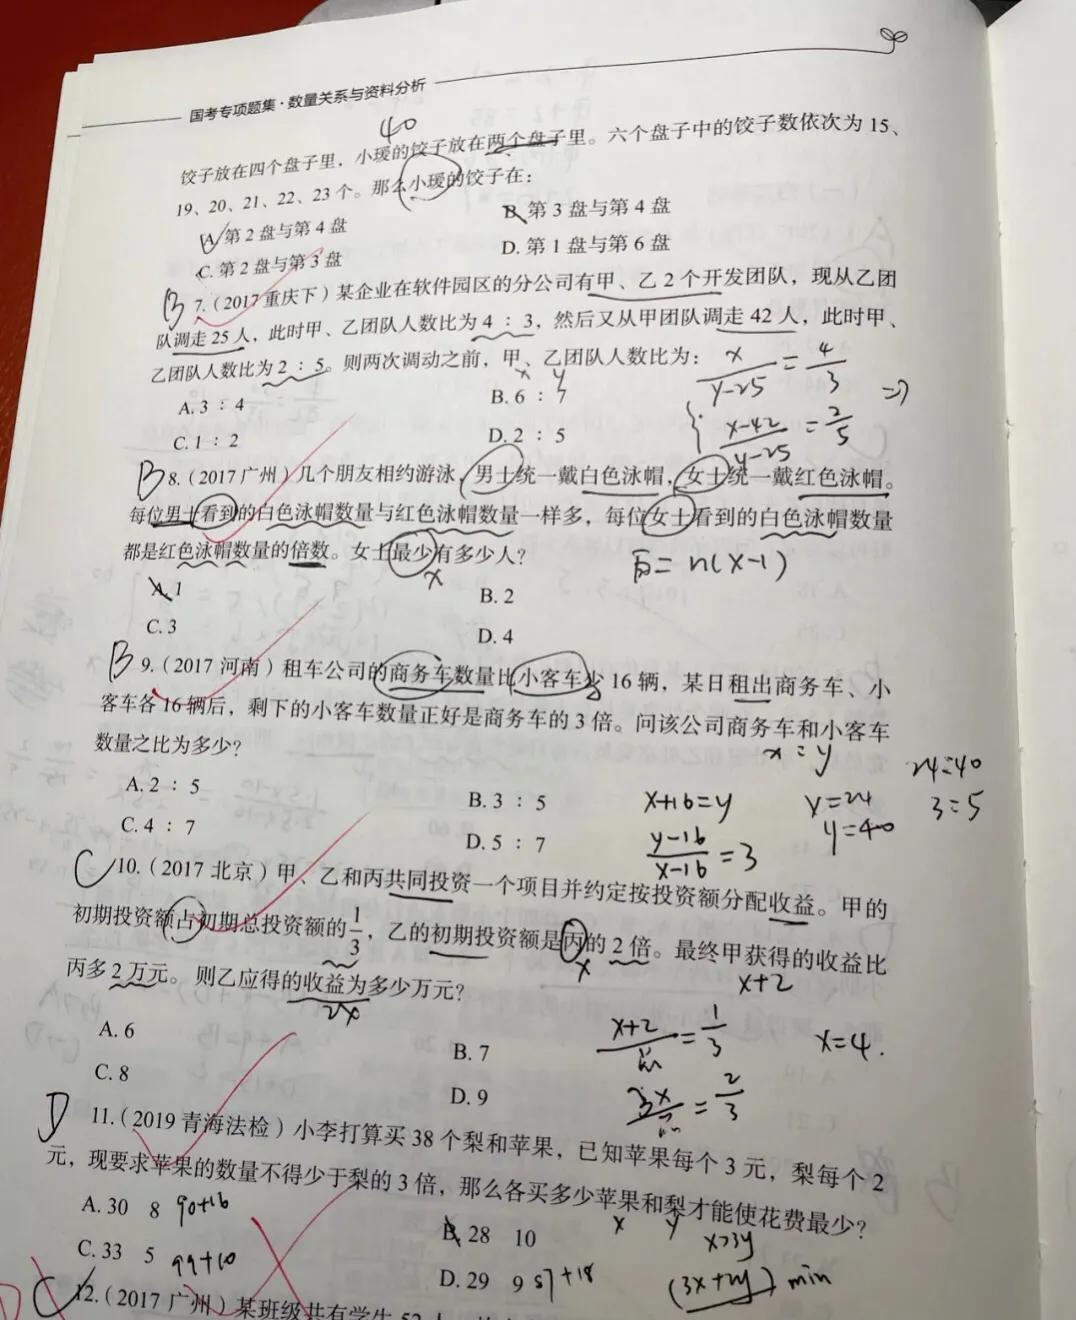 国考专项题集·数量关系与资料分析
40
饺子放在四个盘子里，小瑗的饺子放在两个盘子里。六个盘子中的饺子数依次为 15、
19、20、21、22、23 个。那么小瑗的饺子在：
A. 第 2 盘与第 4 盘
B. 第 3 盘与第 4 盘
C. 第 2 盘与第 3 盘
D. 第 1 盘与第 6 盘
B 7.（2017 重庆下）某企业在软件园区的分公司有甲、乙 2 个开发团队，现从乙团
队调走 25 人，此时甲、乙团队人数比为 4 ∶ 3，然后又从甲团队调走 42 人，此时甲、
乙团队人数比为 2 ∶ 5。则两次调动之前，甲、乙团队人数比为：
x y
x/(y-25) = 4/3
=>
(x-42)/(y-25) = 2/5
A. 3 ∶ 4
B. 6 ∶ 7
C. 1 ∶ 2
D. 2 ∶ 5
B 8.（2017 广州）几个朋友相约游泳，男士统一戴白色泳帽，女士统一戴红色泳帽。
每位男士看到的白色泳帽数量与红色泳帽数量一样多，每位女士看到的白色泳帽数量
都是红色泳帽数量的倍数。女士最少有多少人？
x
= n(x-1)
A. 1
B. 2
C. 3
D. 4
B 9.（2017 河南）租车公司的商务车数量比小客车少 16 辆，某日租出商务车、小
客车各 16 辆后，剩下的小客车数量正好是商务车的 3 倍。问该公司商务车和小客车
数量之比为多少？
x : y
24:40
3:5
A. 2 ∶ 5
B. 3 ∶ 5
C. 4 ∶ 7
D. 5 ∶ 7
x+16=y
x=24
y=40
(y-16)/(x-16) = 3
C 10.（2017 北京）甲、乙和丙共同投资一个项目并约定按投资额分配收益。甲的
初期投资额占初期总投资额的 1/3，乙的初期投资额是丙的 2 倍。最终甲获得的收益比
x
x+2
丙多 2 万元。则乙应得的收益为多少万元？
2x
A. 6
B. 7
C. 8
D. 9
x+2 = 1/3
x=4.
3x = 2/3
D 11.（2019 青海法检）小李打算买 38 个梨和苹果，已知苹果每个 3 元，梨每个 2
元，现要求苹果的数量不得少于梨的 3 倍，那么各买多少苹果和梨才能使花费最少？
x y
x≥3y
(3x+2y) min
A. 30 8 90+16
B. 28 10
C. 33 5 99+10
D. 29 9 87+18
C 12.（2017 广州）某班级共有学生 52